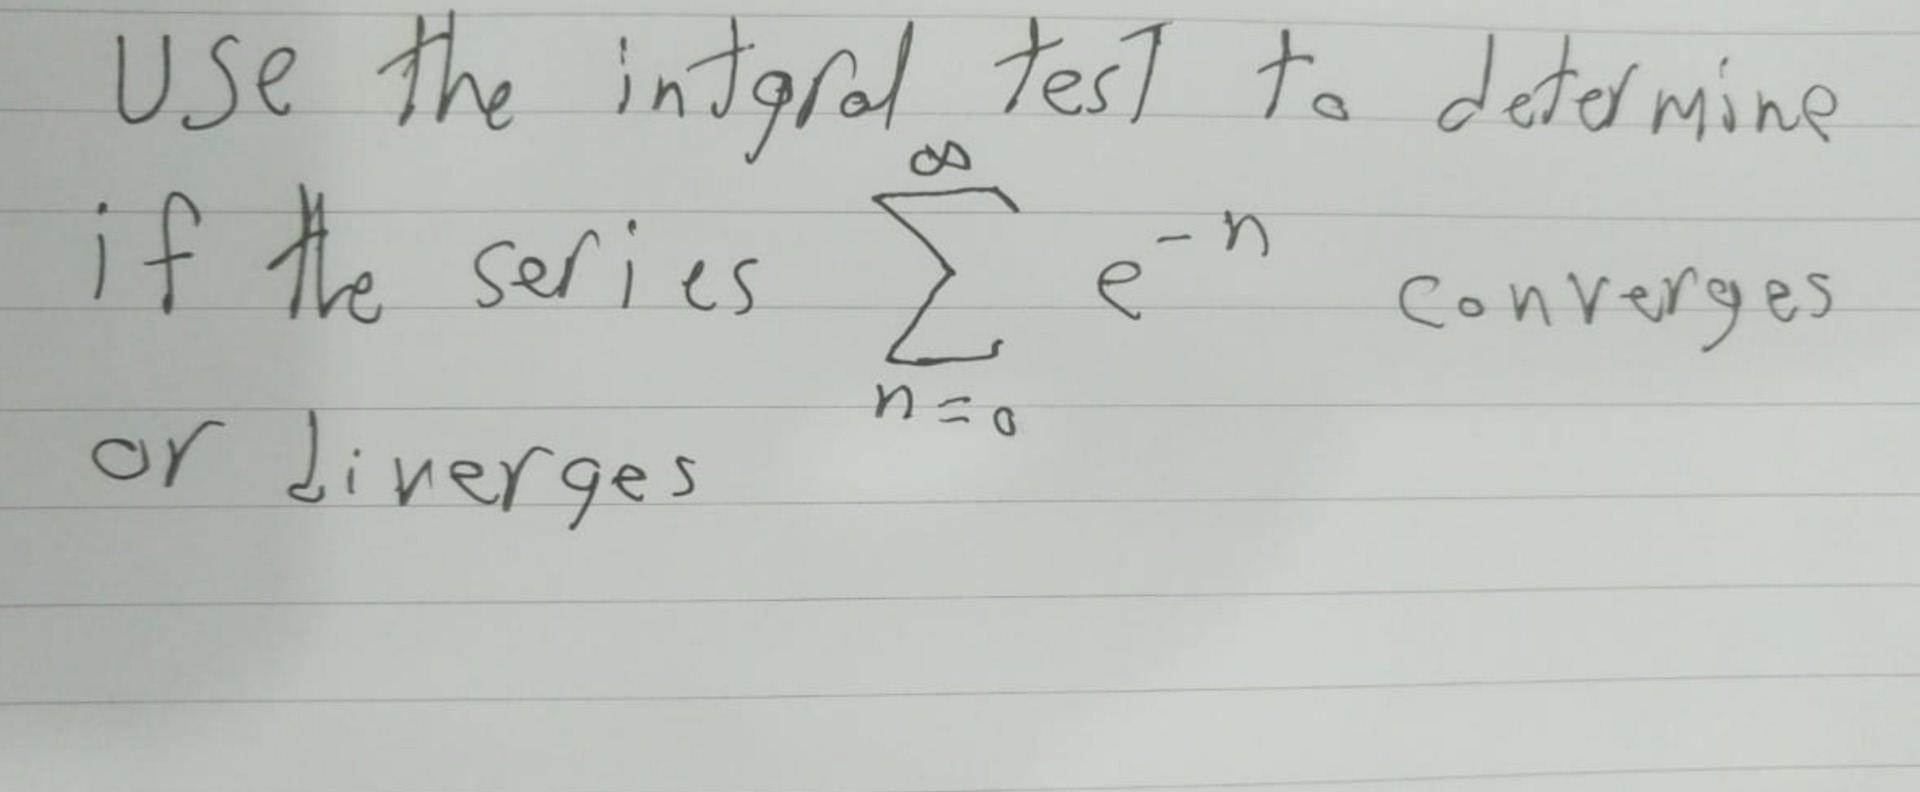 Use the intgral test to determine
if the series ∞∑n=0 e^-n converges
or diverges